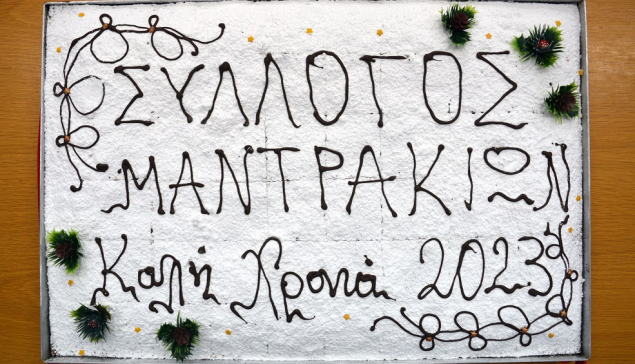 ΣΥΛΛΟΓΟΣ
ΜΑΝΤΡΑΚΙΩΝ
Καλή Χρονιά 2023